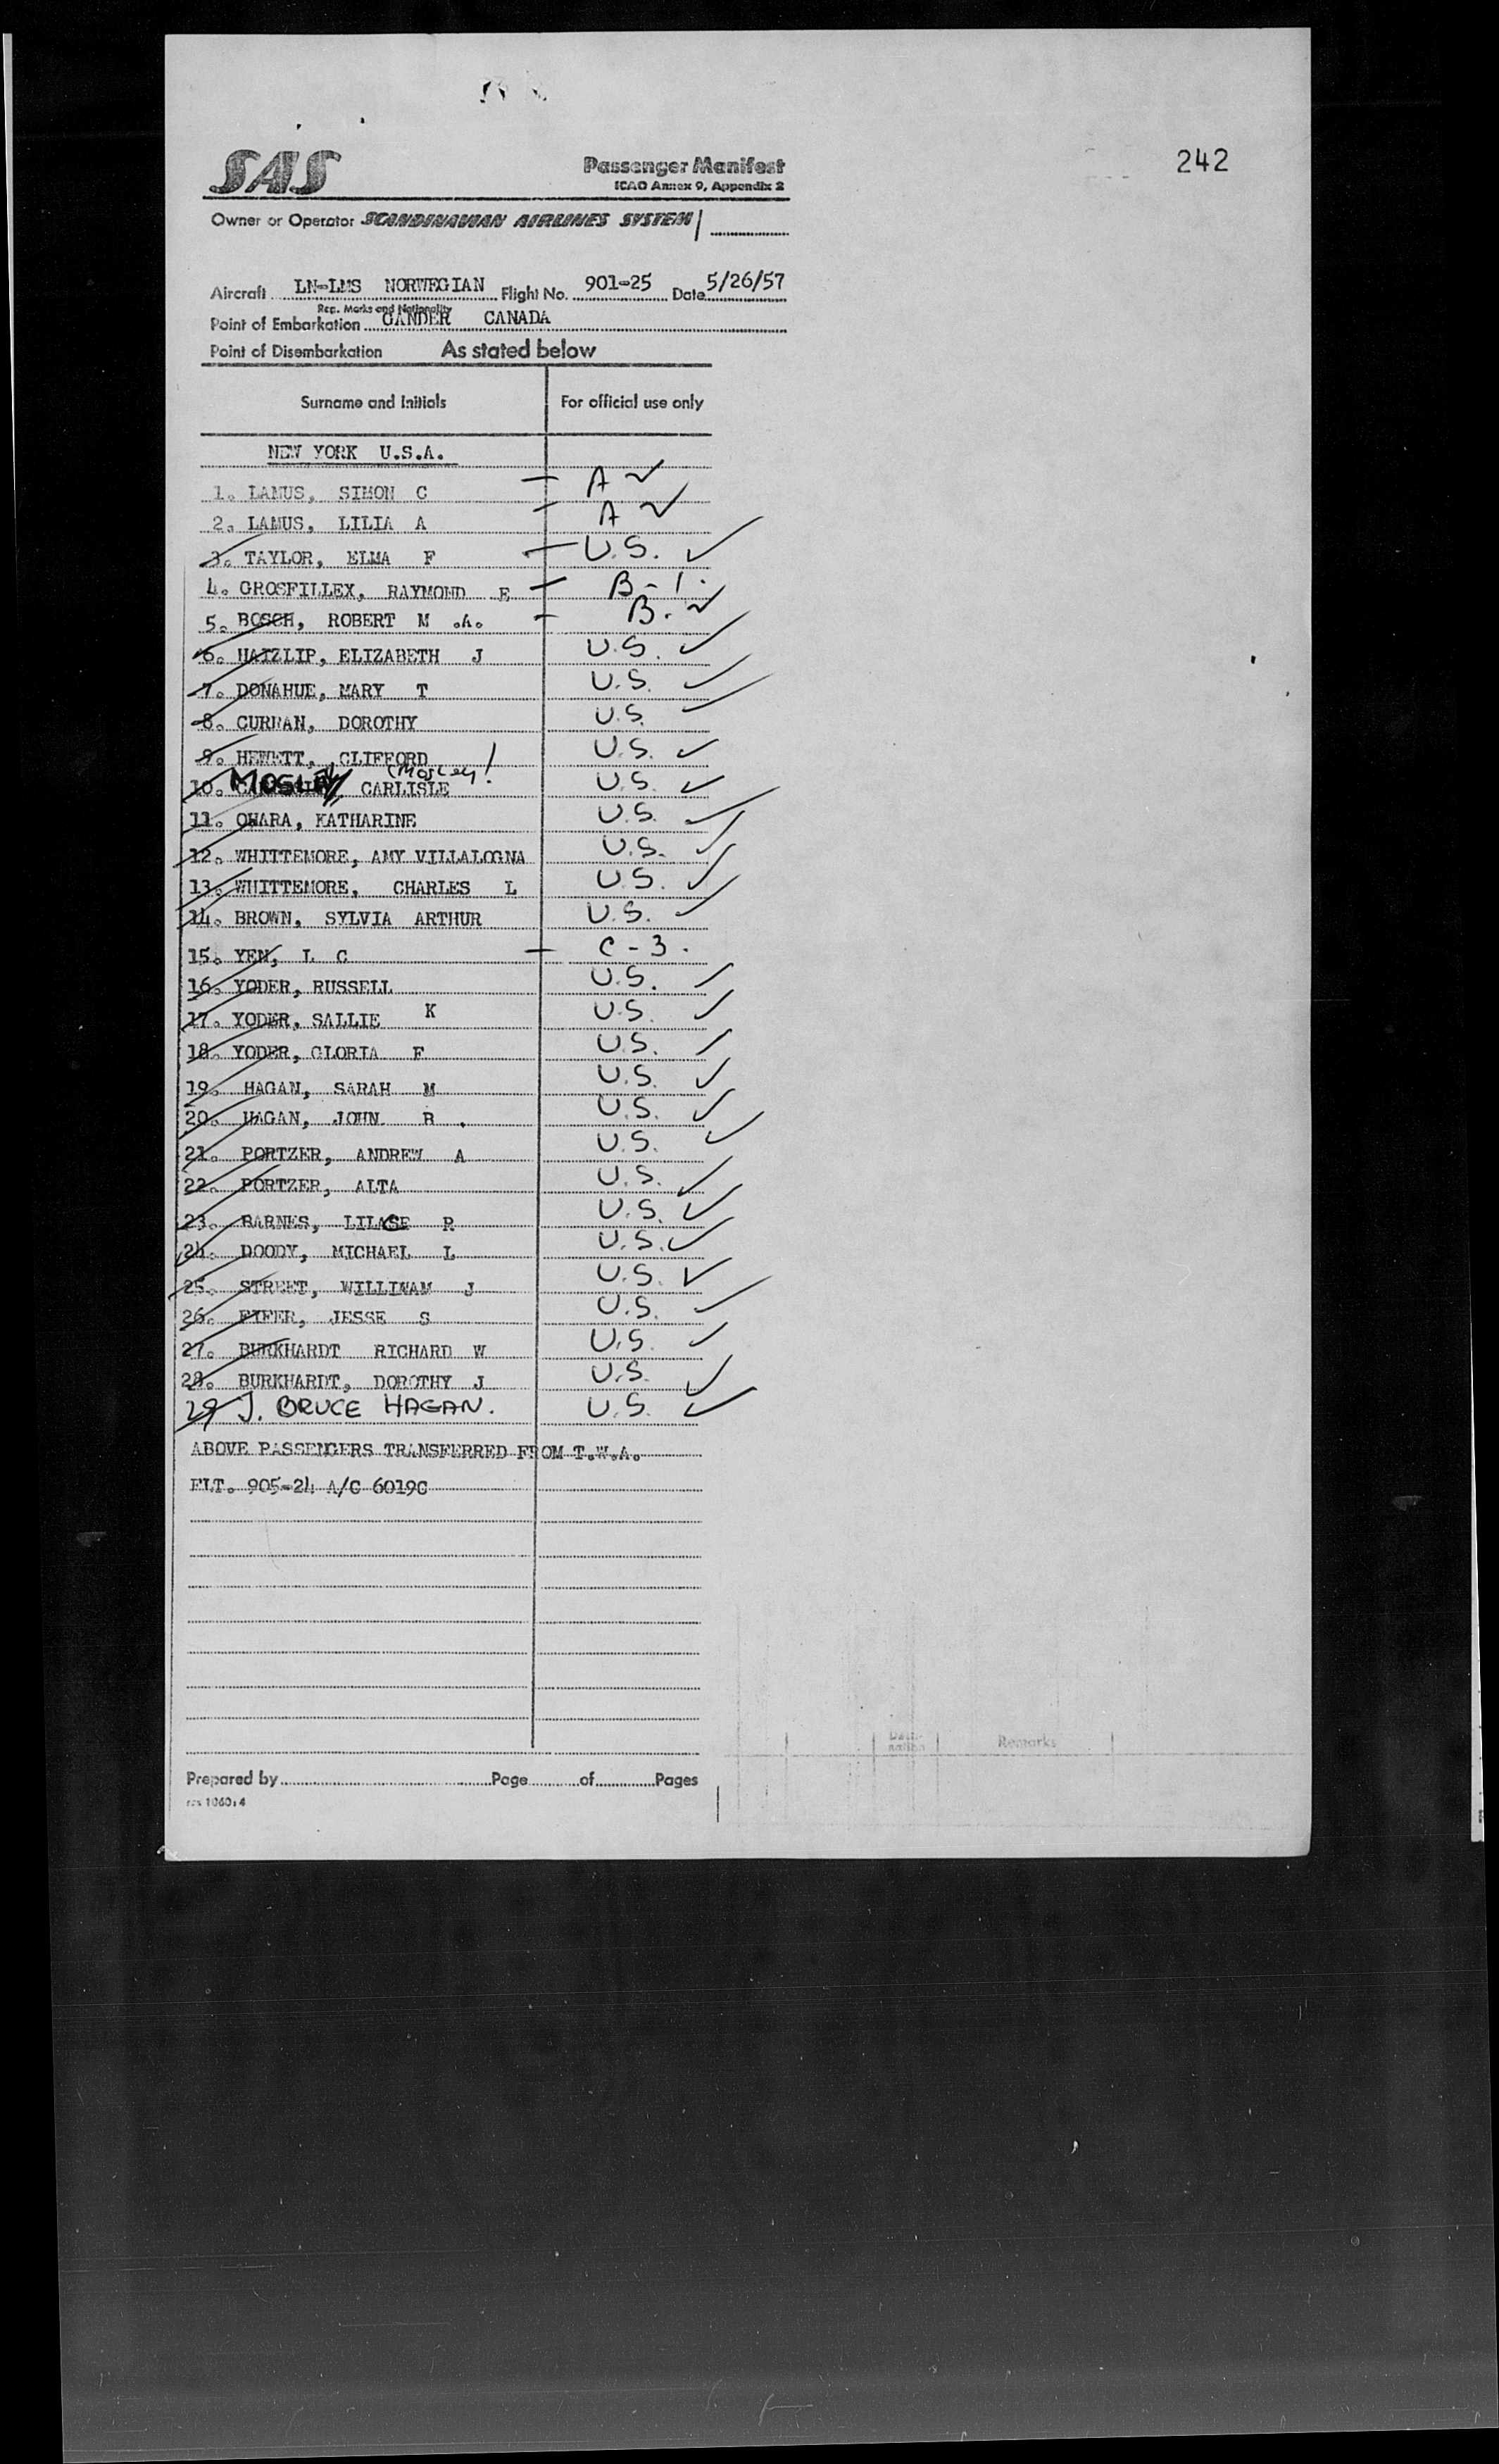 242
SAS
Passenger Manifest
ICAO Annex 9, Appendix 2
Owner or Operator SCANDINAVIAN AIRLINES SYSTEM
Aircraft LN-LMS NORWEGIAN Flight No. 901-25 Date 5/26/57
Reg. Marks and Nationality
Point of Embarkation GANDER CANADA
Point of Disembarkation As stated below
Surname and Initials For official use only
NEW YORK U.S.A.
1. LAMUS, SIMON C — A
2. LAMUS, LILIA A — A
3. TAYLOR, ELMA F — U.S. ✓
4. GROSFILLEX, RAYMOND E — B-1.
5. BOSCH, ROBERT M .A. — B.
6. HAIZLIP, ELIZABETH J U.S. ✓
7. DONAHUE, MARY T U.S. ✓
8. CURRAN, DOROTHY U.S. ✓
9. HEWETT, CLIFFORD U.S. ✓
(MOSLEY!
10. MOSLEY CARLISLE U.S. ✓
11. OHARA, KATHARINE U.S. ✓
12. WHITTEMORE, AMY VILLALOGNA U.S. ✓
13. WHITTEMORE, CHARLES L U.S. ✓
14. BROWN, SYLVIA ARTHUR U.S. ✓
15. YEN, L C — C-3.
16. YODER, RUSSELL U.S. ✓
17. YODER, SALLIE K U.S. ✓
18. YODER, GLORIA F U.S. ✓
19. HAGAN, SARAH M U.S. ✓
20. HAGAN, JOHN R . U.S. ✓
21. PORTZER, ANDREW A U.S. ✓
22. PORTZER, ALTA U.S. ✓
23. BARNES, R U.S. ✓
24. DOODY, MICHAEL L U.S. ✓
25. STREET, WILLIMAM J U.S. ✓
26. FIFER, JESSE S U.S. ✓
27. BURKHARDT RICHARD W U.S. ✓
28. BURKHARDT, DOROTHY J U.S. ✓
29 J. BRUCE HAGAN. U.S. ✓
ABOVE PASSENGERS TRANSFERRED FROM T.W.A.
FLT. 905-24 A/C 6019C
Desti-
nation
Remarks
Prepared by Page of Pages
1060:4